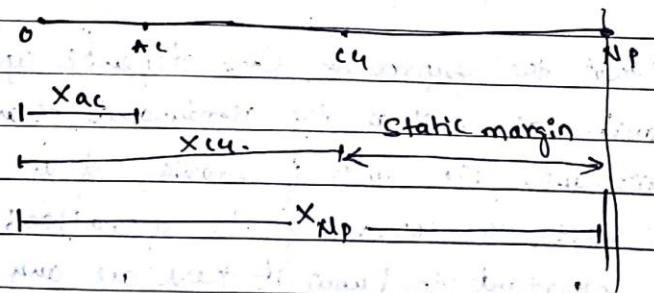 O AC CG NP
Xac
XCG. Static margin
XNP